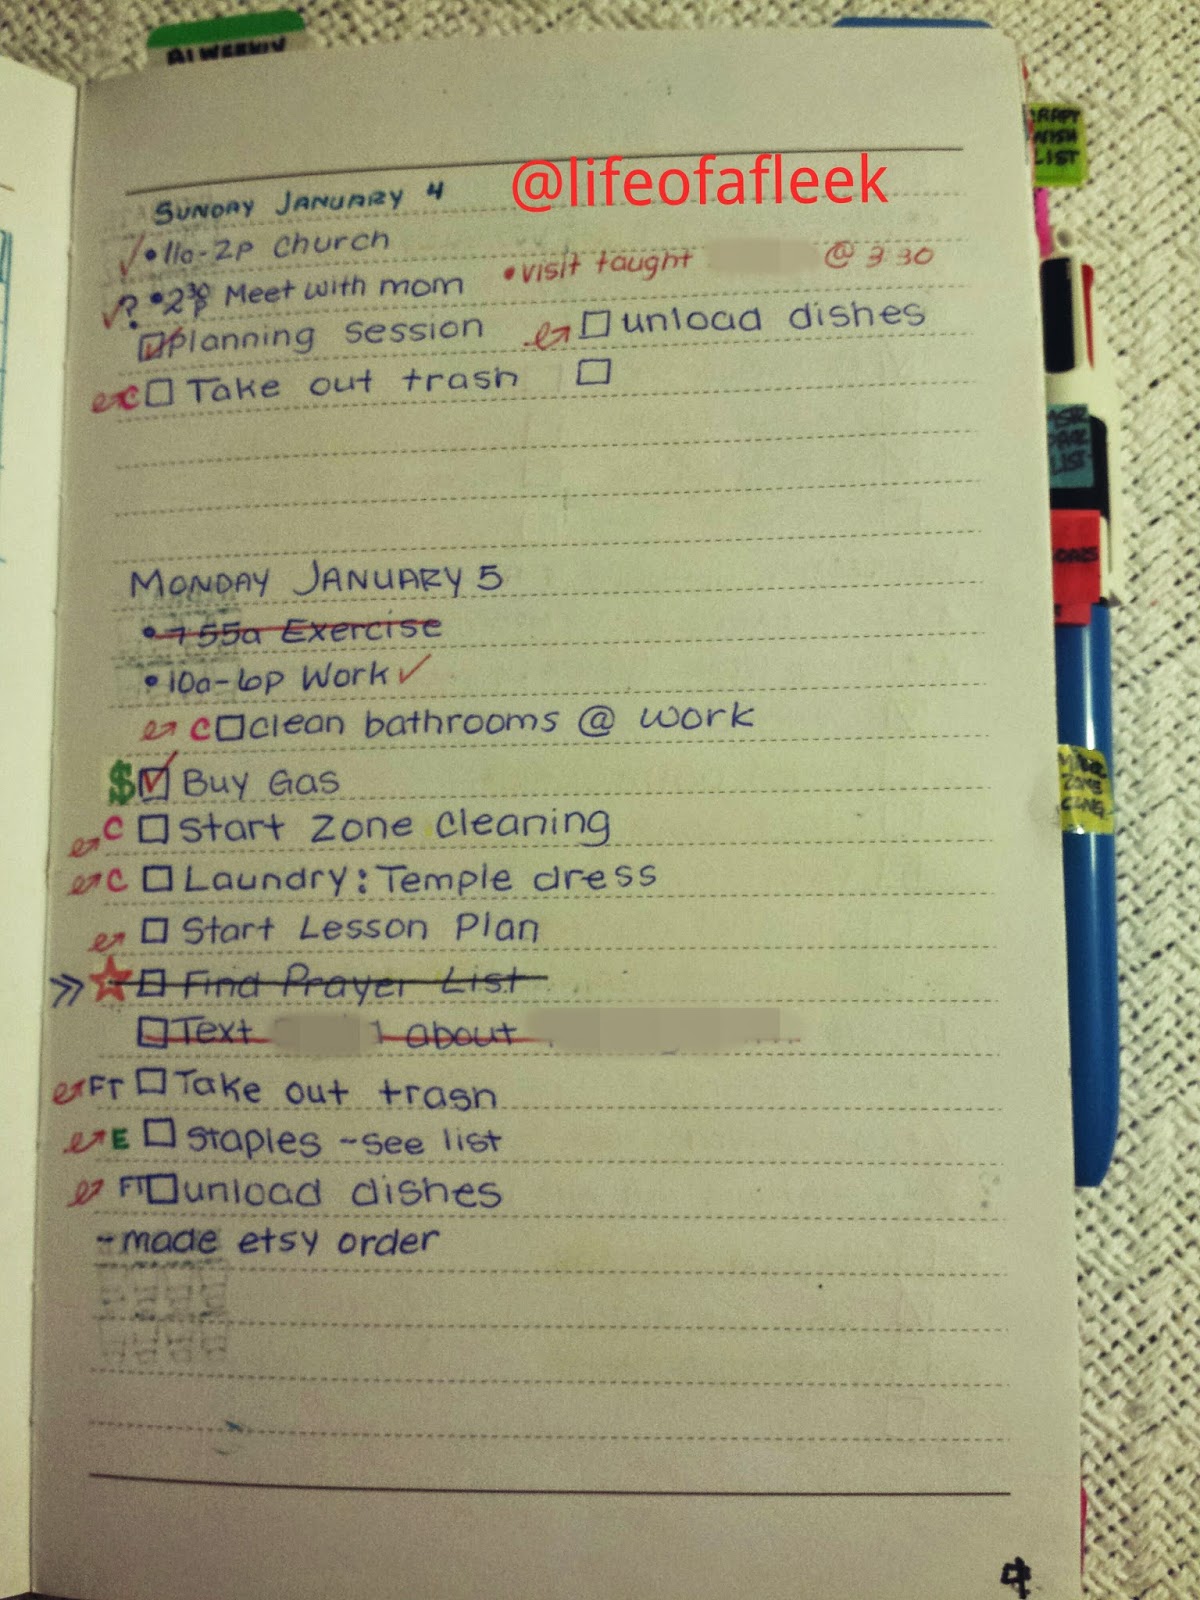 AI WEEKLY
@lifeofafleek
SUNDAY JANUARY 4
✓ • 11a-2p Church
✓? • 2³⁰p Meet with mom • visit taught @ 3 30
☑ Planning session ☐ unload dishes
C ☐ Take out trash ☐
MONDAY JANUARY 5
• 7 55a Exercise
• 10a-6p Work ✓
C ☐ clean bathrooms @ work
$ ☑ Buy Gas
C ☐ Start Zone Cleaning
C ☐ Laundry: Temple dress
☐ Start Lesson Plan
>> ☐ Find Prayer List
☐ Text about
FT ☐ Take out trash
E ☐ Staples ~see list
FT ☐ unload dishes
- made etsy order
4
WISH
LIST
LIST
ZONE